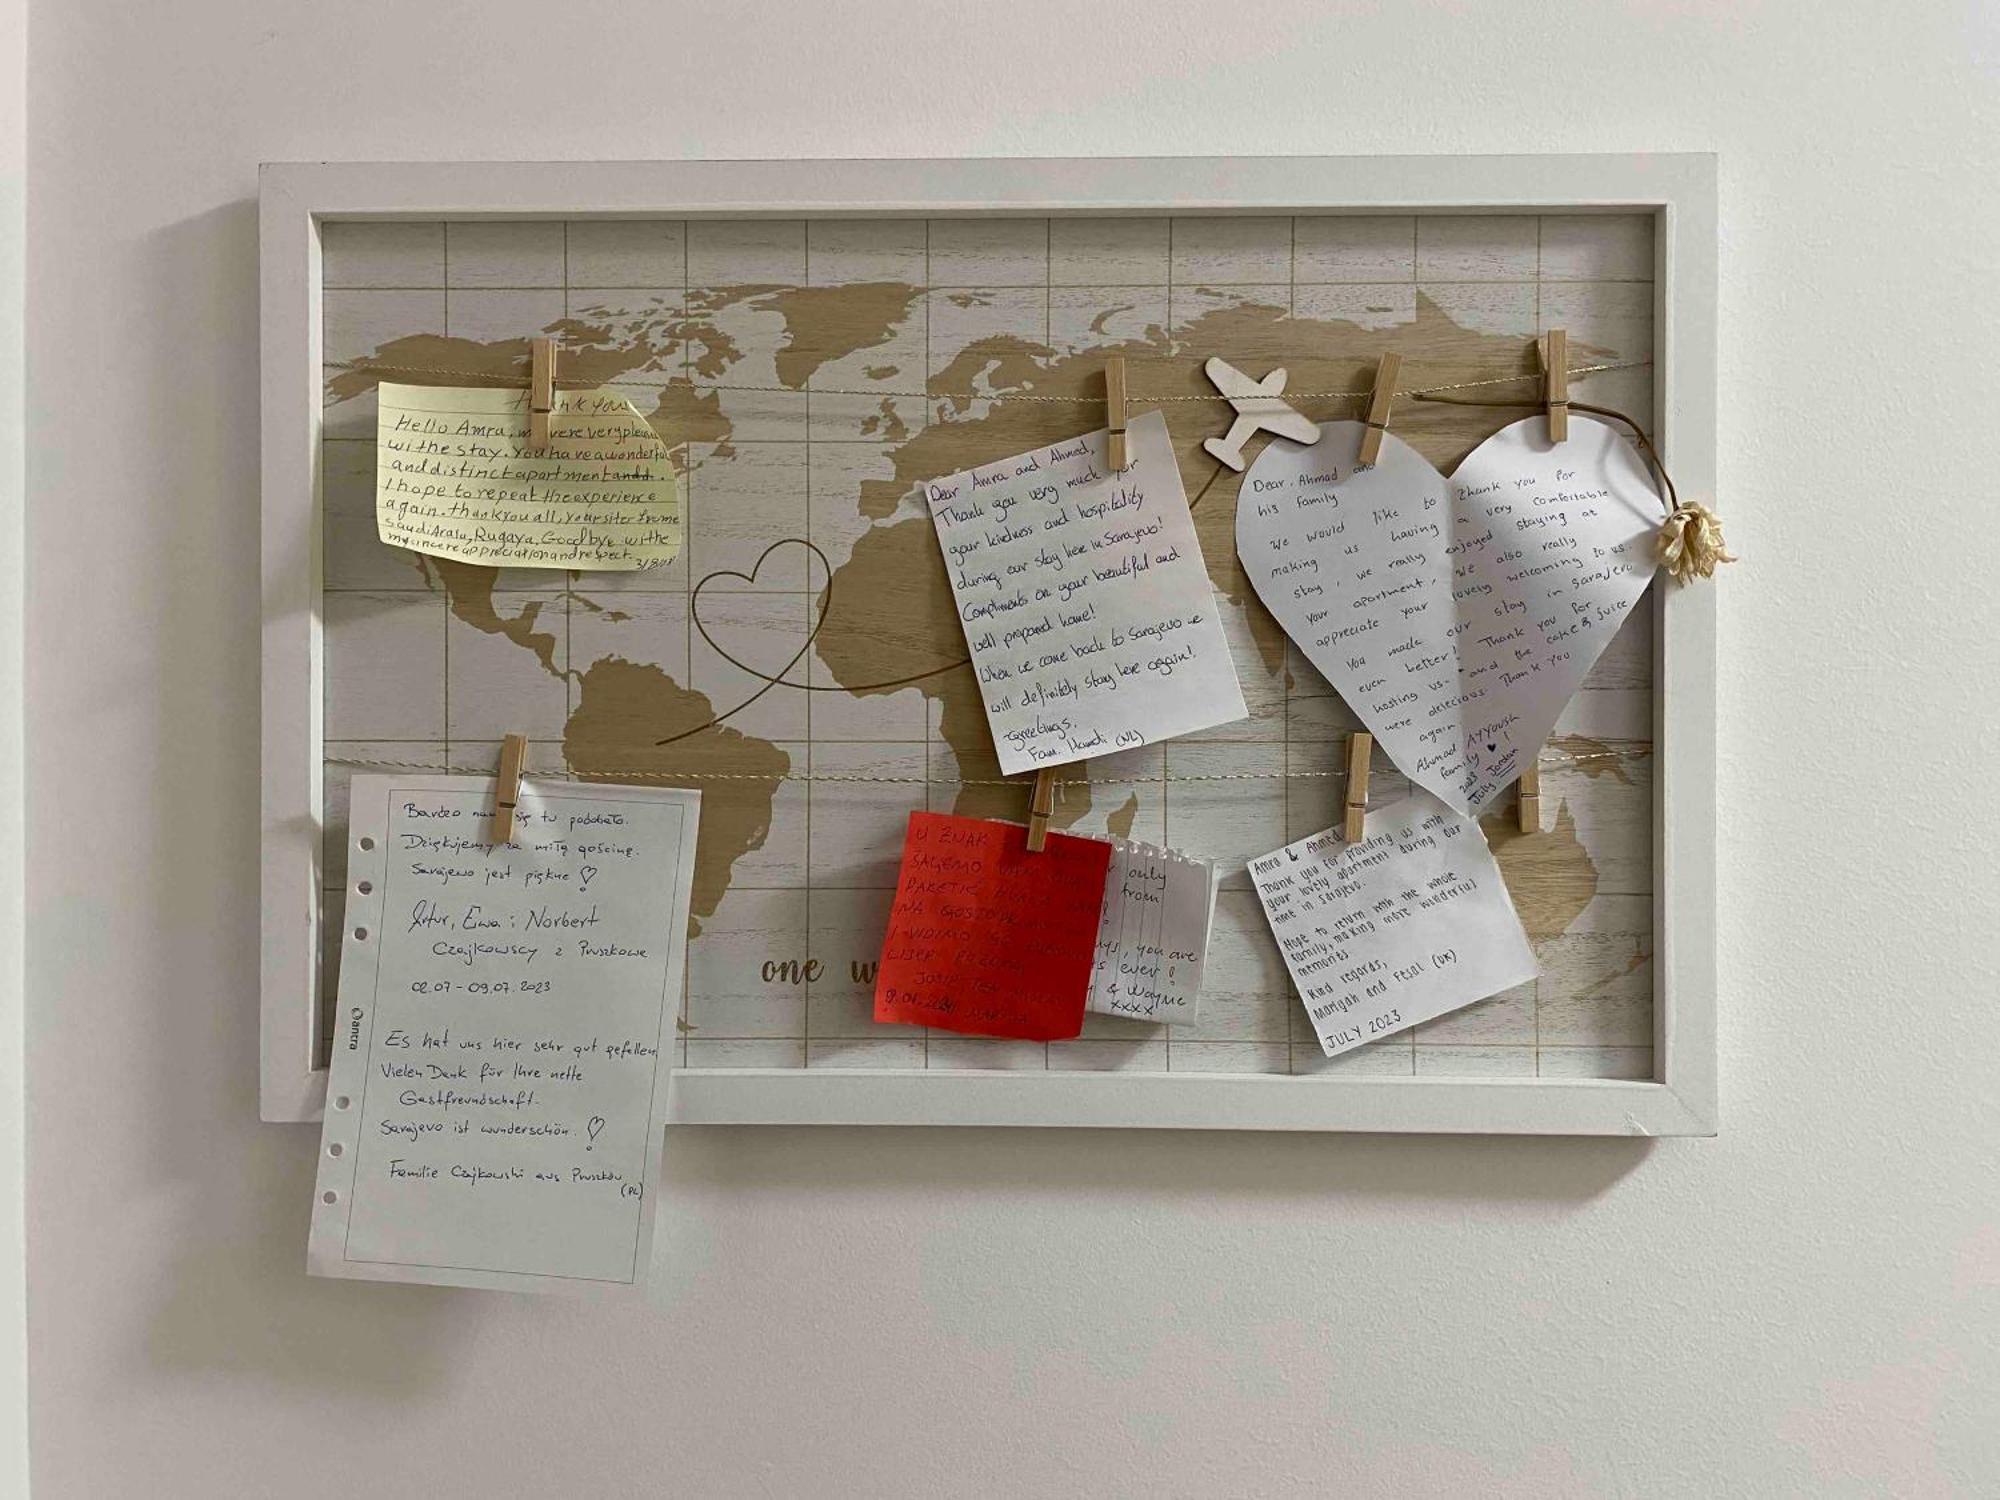 Thank you
Hello Amra, were very
wi the stay. You have a wonderful
and distinct apartment
I hope to repeat the experience
again. thank you all, your siter from
saudi Arabia, Ruqaya, Goodbye with
my sincere appreciation and respect.
Dear Amra and Ahmed,
Thank you very much for
your kindness and hospitality
during our stay here in Sarajevo!
Compliments on your beautiful and
well prepared home!
When we come back to Sarajevo we
will definitely stay here again!
greetings,
Fam. Hamdi (NL)
Dear. Ahmad and
his family
We would like to
making us having
stay, we really
your apartment,
appreciate your
You made our
even better!
hosting us.
were delecious.
again
Thank you for
a very comfortable
enjoyed staying at
we also really
lovely welcoming to us.
stay in Sarajevo
Thank you for
and the cake & juice
Thank you
Ahmad AYYOUSH
family !
2023
July Jordan
Bardzo nam się tu podobało.
Dziękujemy za miłą gościnę.
Sarajewo jest piękne
Artur, Ewa i Norbert
Czajkowscy z Pruszkowa
02.07 - 09.07.2023
Es hat uns hier sehr gut gefallen
Vielen Dank für Ihre nette
Gastfreundschaft.
Sarajevo ist wunderschön.
Familie Czajkowski aus Pruszków
(PL)
antra
one w
U ZNAK
ŠALJEMO VAM
PAKETIĆ
NA
I VIDIMO SE
LIJEP POZDRAV
only
from
guys, you are
ever!
& Wayne
xxxx
Amra & Ahmed
Thank you for providing us with
your lovely apartment during our
time in Sarajevo.
Hope to return with the whole
family, making more wonderful
memories
Kind regards,
Mariyah and Feisal (UK)
JULY 2023